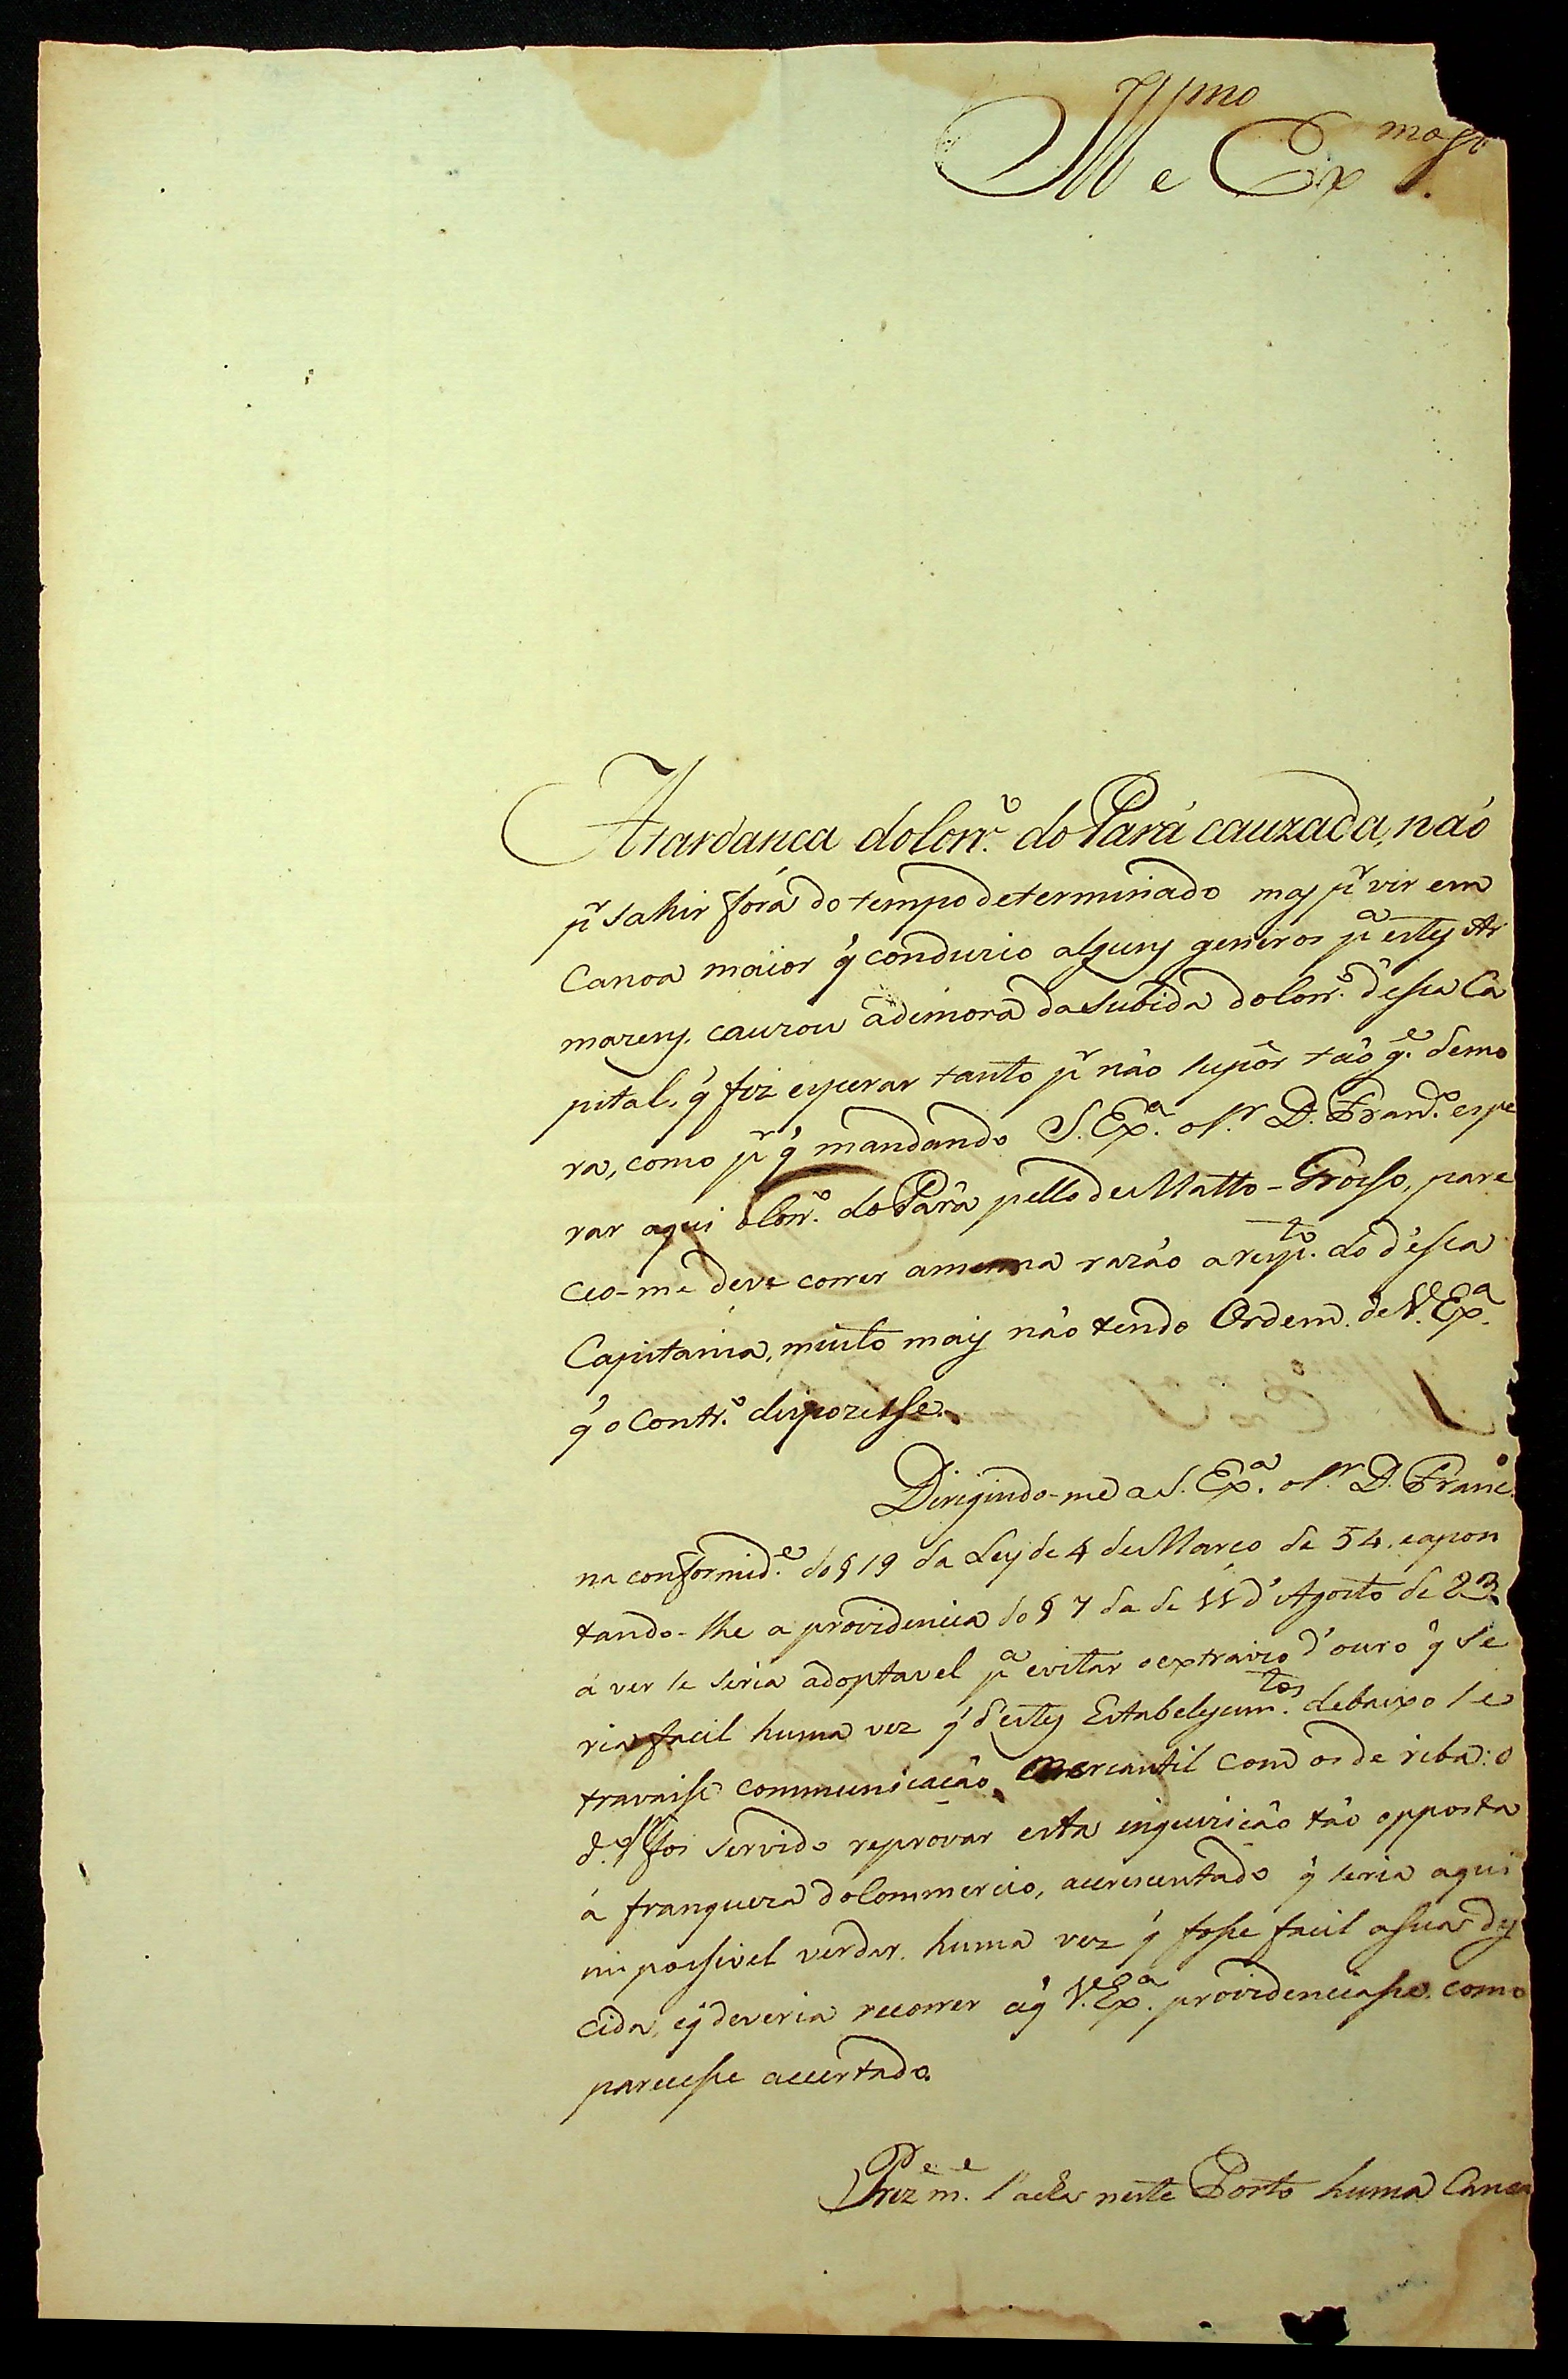 Ill.mo e Ex.mo Sr.
A tardanca do Corr.o do Pará cauzada, não
pr sahir fóra do tempo determinado mas pr vir em
Canoa maior q' conduzio alguns generos pa estes Ar
mazens, cauzou a demora da subida do Corr.o d'essa Ca
pital, q' fiz esperar tanto pr não supôr tão g.e demo
ra, como pr q' mandando S. Ex.a o S.r D. Fran.co espe
rar aqui o Corr.o do Pará pello de Matto-Grosso, pare
ceo-me deve correr a mesma razão a resp.to do d'essa
Capitania, muito mais não tendo Ordem de V. Ex.a
q' o contr.o dispozesse.
Dirigindo-me a S. Ex.a o S.r D. Franc.o
na conformid.e do § 19 da Ley de 4 de Março de 54, e apon
tando-lhe a providencia do § 7 da de 11 d'Agosto de
á ver se seria adoptavel pa evitar o extravio d'ouro q' se
ria facil huma vez q' d'estes Estabelesim.tos debaixo se
travasse communicação mercantil com os de riba: o
d.o S.r foi servido reprovar esta inquirição tão opposta
á franqueza do Commercio, acrescentado q' seria aqui
impossivel vendar huma vez q' fosse facil a sua des
cida, e q' deveria recorrer a q' V. Ex.a providenciasse como
parecesse accertado.
Prez.e m.e neste Porto huma Canoa